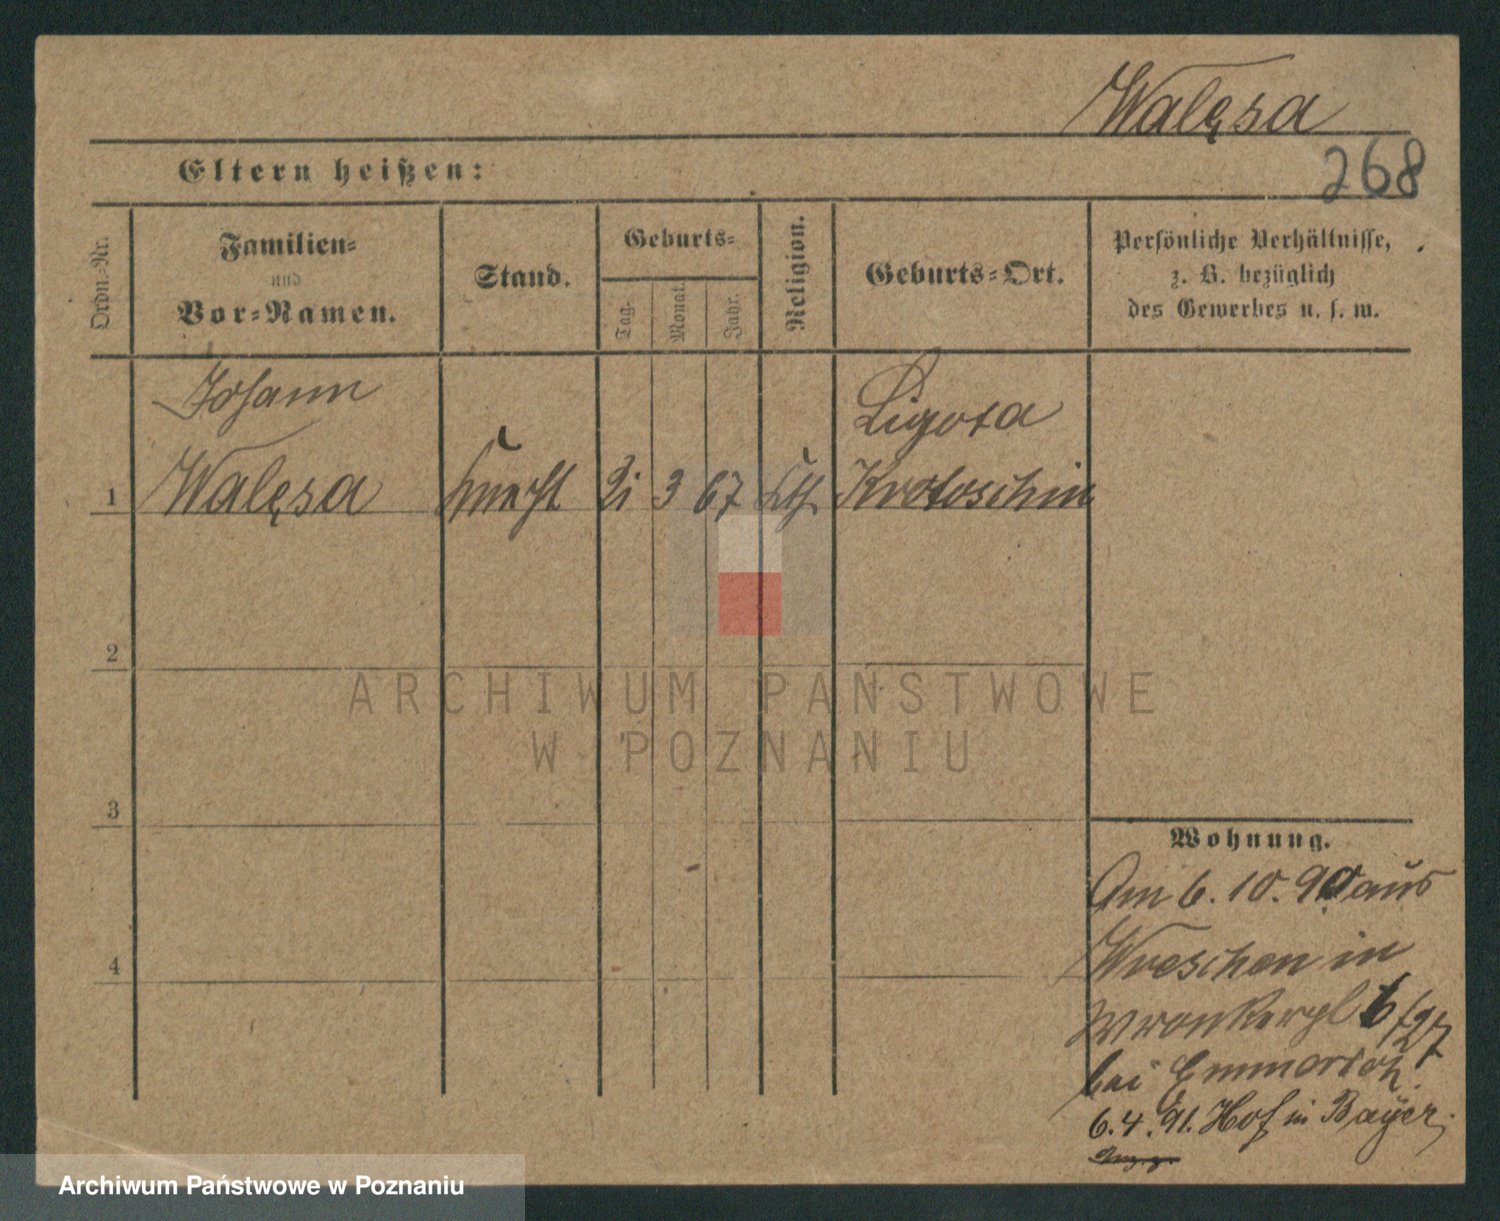 Walęsa
268
Eltern heißen:
Ordn.-Nr.
Familien-
und
Vor-Namen.
Stand.
Geburts-
Tag.
Monat.
Jahr.
Religion.
Geburts-Ort.
Persönliche Verhältnisse,
z. B. bezüglich
des Gewerbes u. s. w.
Johann
Ligota
1 Walęsa Knecht 21 3 67 kth Krotoschin
2
3
4
Wohnung.
Am 6. 10. 90 aus
Wreschen in
Wronkerpl 6/27
bei Emmerich
6. 4. 91. Hof in Bayer.
ARCHIWUM PAŃSTWOWE
W POZNANIU
Archiwum Państwowe w Poznaniu